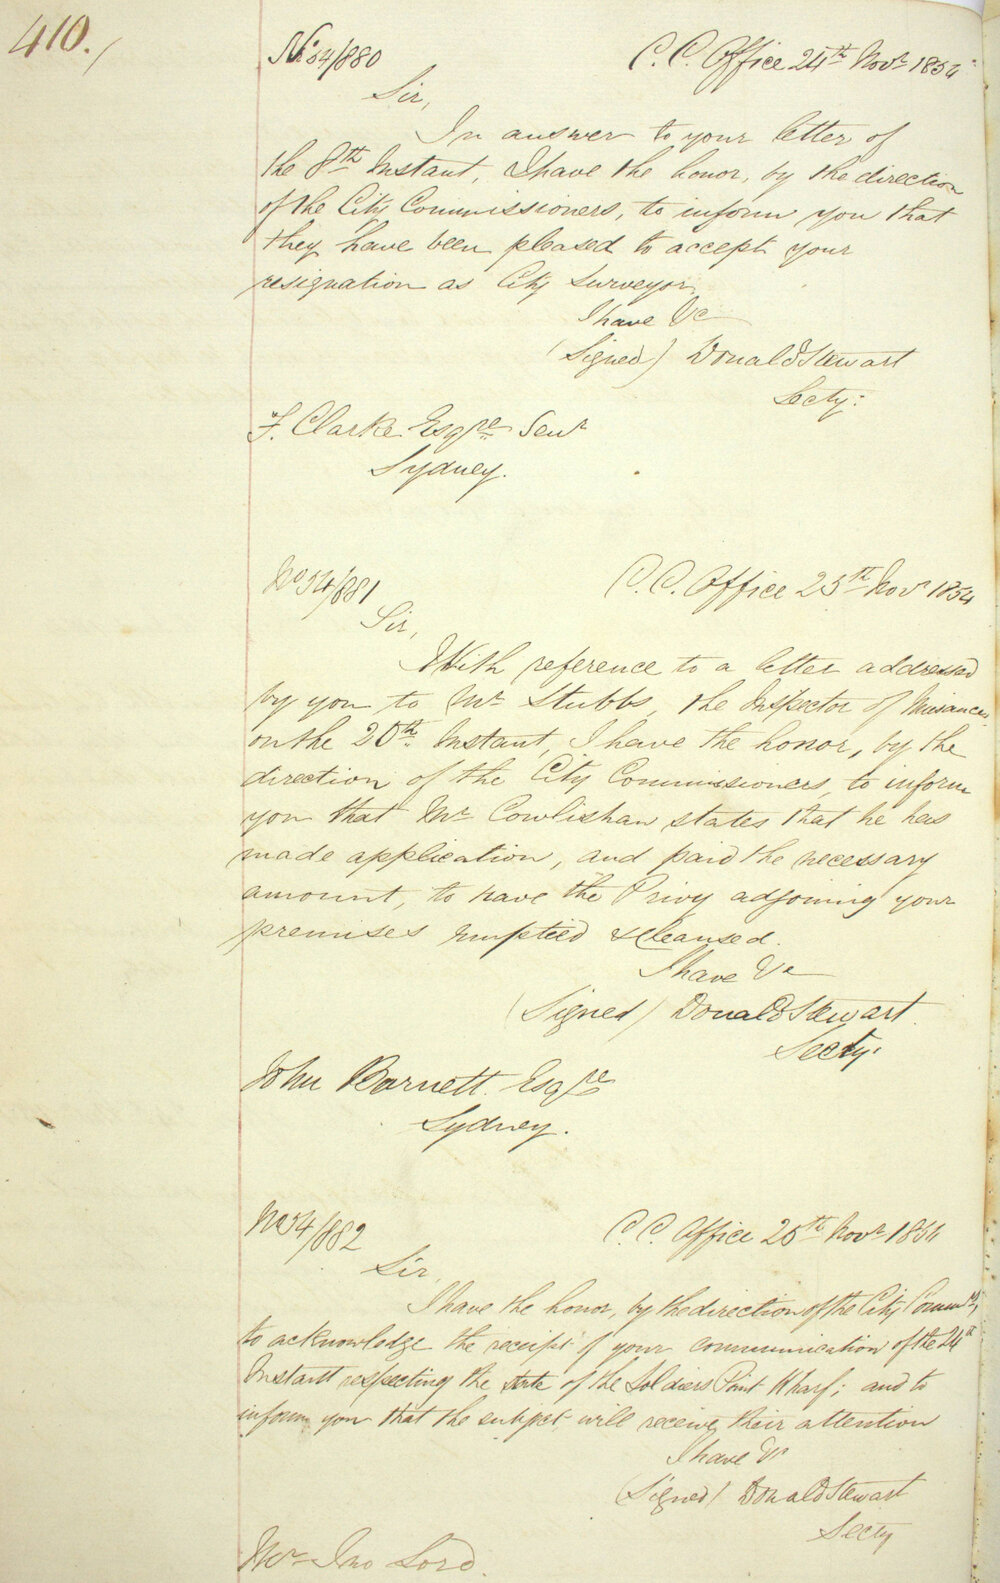 410.
No 54/880 C. C. Office 24th Novr 1854
Sir,
In answer to your letter of
the 8th Instant, I have the honor, by the direction
of the City Commissioners, to inform you that
they have been pleased to accept your
resignation as City Surveyor.
I have &c
(Signed) Donald Stewart
Secty:
F. Clarke Esqre Senr
Sydney.
No 54/881 C. C. Office 25th Novr 1854
Sir,
With reference to a letter addressed
by you to Mr Stubbs, the Inspector of Nuisances,
on the 20th Instant, I have the honor, by the
direction of the City Commissioners, to inform
you that Mr Cowlishaw states that he has
made application, and paid the necessary
amount, to have the Privy adjoining your
premises emptied & Cleansed.
I have &c
(Signed) Donald Stewart.
Secty.
John Barnett. Esqre
Sydney.
No 54/882 C. C. Office 25th Novr 1854
Sir,
I have the honor, by the direction of the City Commrs,
to acknowledge the receipt of your communication of the 24th
Instant respecting the state of the Soldiers Point Wharf; and to
inform you that the subject will receive their attention
I have &c
(Signed) Donald Stewart
Secty
Mr Jno Lord.